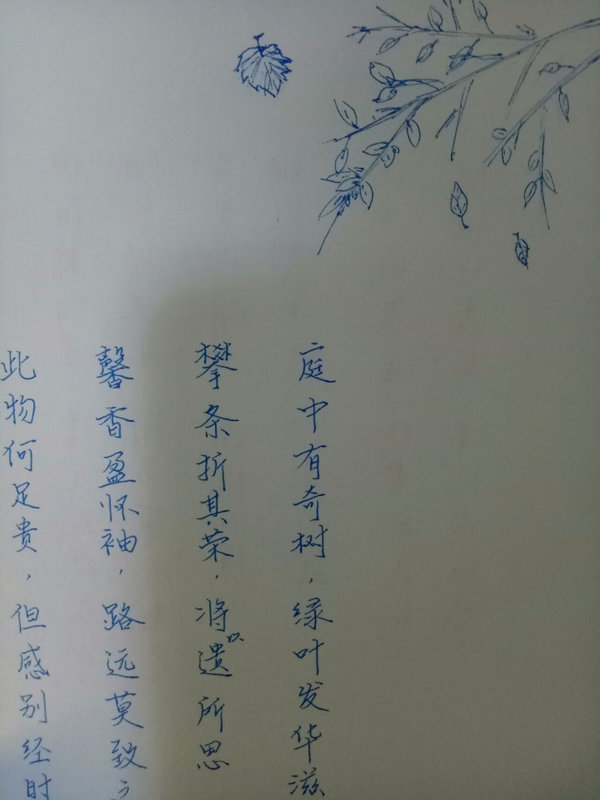 庭中有奇树，绿叶发华滋
攀条折其荣，将以遗所思
馨香盈怀袖，路远莫致之
此物何足贵，但感别经时